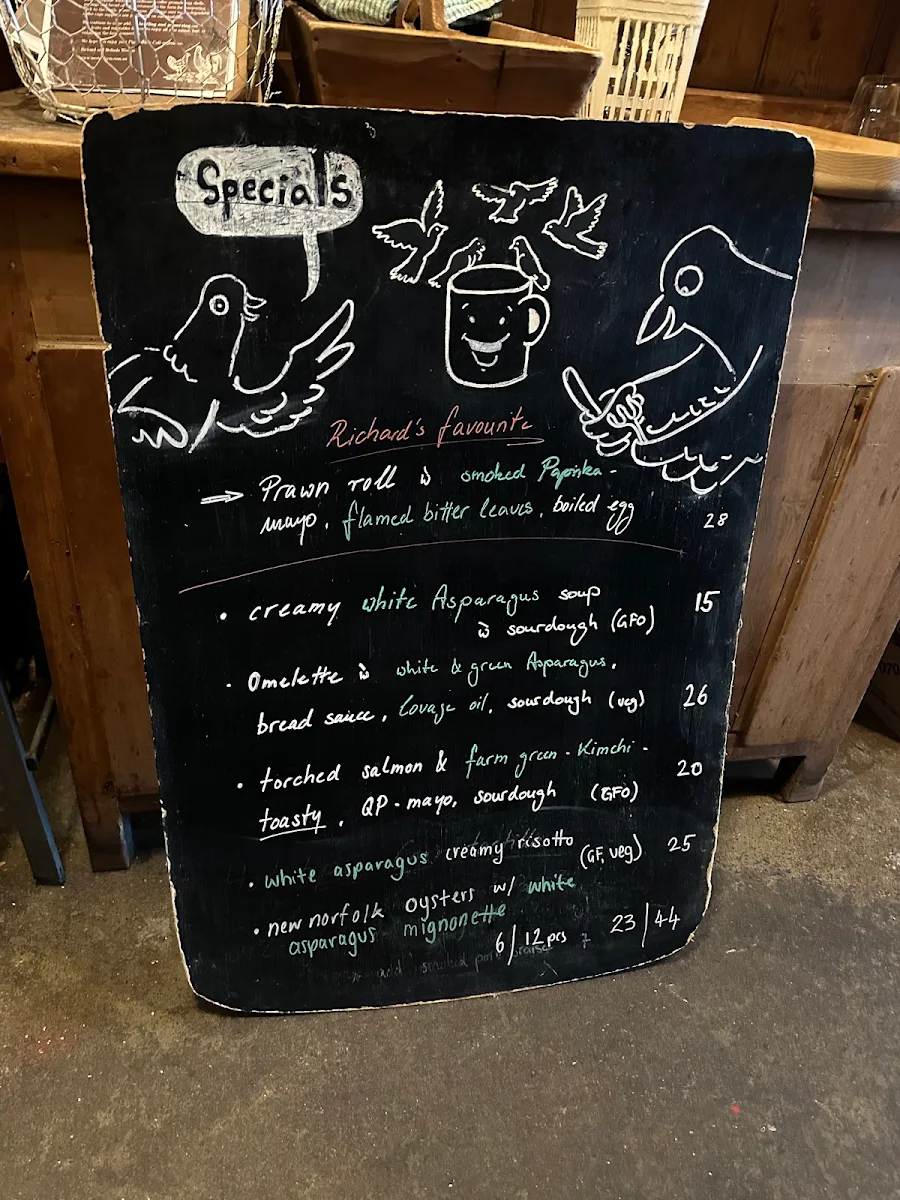 Specials
Richard's favourite
Prawn roll w̃ smoked Paprika -
mayo, flamed bitter leaves, boiled egg 28
• creamy white Asparagus soup 15
w̃ sourdough (GFO)
• Omelette w̃ white & green Asparagus,
bread sauce, Lovage oil, sourdough (veg) 26
• torched salmon & farm green - Kimchi - 20
toasty, QP - mayo, sourdough (GFO)
• white asparagus creamy risotto (GF, veg) 25
• new norfolk oysters w/ white
asparagus mignonette
6/12 pcs 23/44
add smoked pork